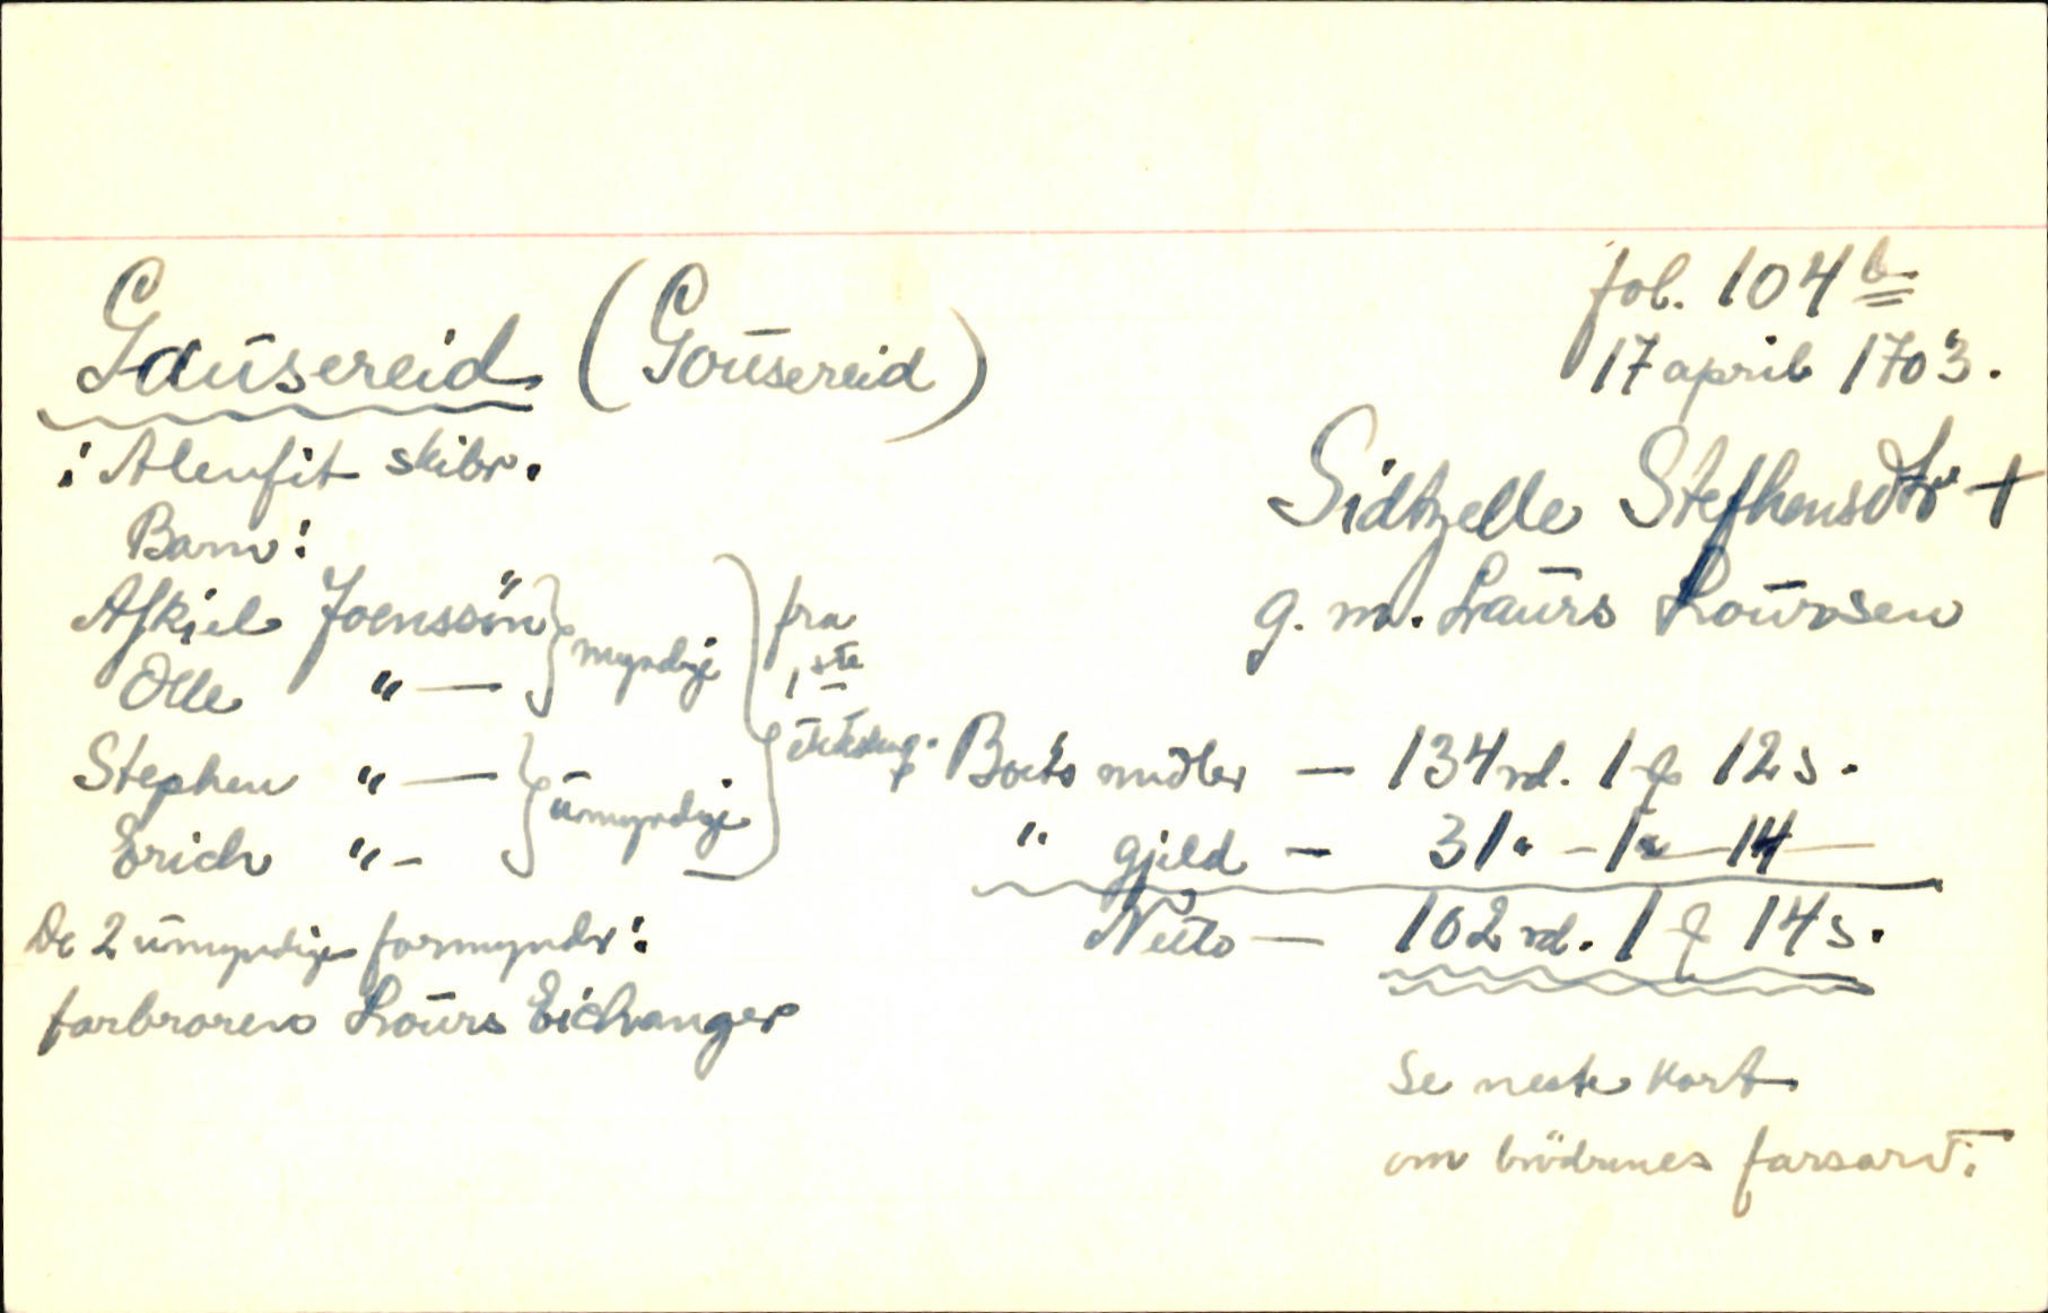 fol. 104 b
17 april 1703.
Gausereid (Gousereid)
i Alenfit skibr.
Sidtzelle Stephensdtr +
g. m. Laurs Loursen
Barn:
Afkiel Joenssøn } myndige
Olle " —
Stephen " — } umyndige
Erich " –
fra 1ste ekteskap.
Boets midler — 134 rd. 1 ₰ 12 s.
" gjeld — 31 " – 1 " — 14 —
Netto — 102 rd. 1 ₰ 14 s.
De 2 umyndige formyndr:
farbroren Lours Eichanger
Se neste kort
om brödrenes farsarv.